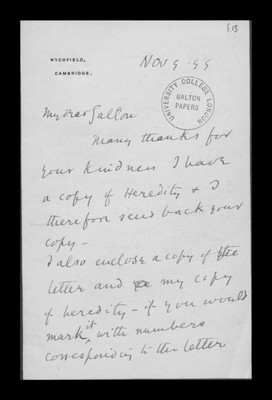 F13
WYCHFIELD,
CAMBRIDGE.
Nov 9. 99
UNIVERSITY COLLEGE LONDON
GALTON
PAPERS
My dear Galton
Many thanks for
your kindness I have
a copy of Heredity & I
therefore send back your
copy –
I also enclose a copy of the
letter and my copy
of heredity – if you would
mark it with numbers
corresponding to the letter